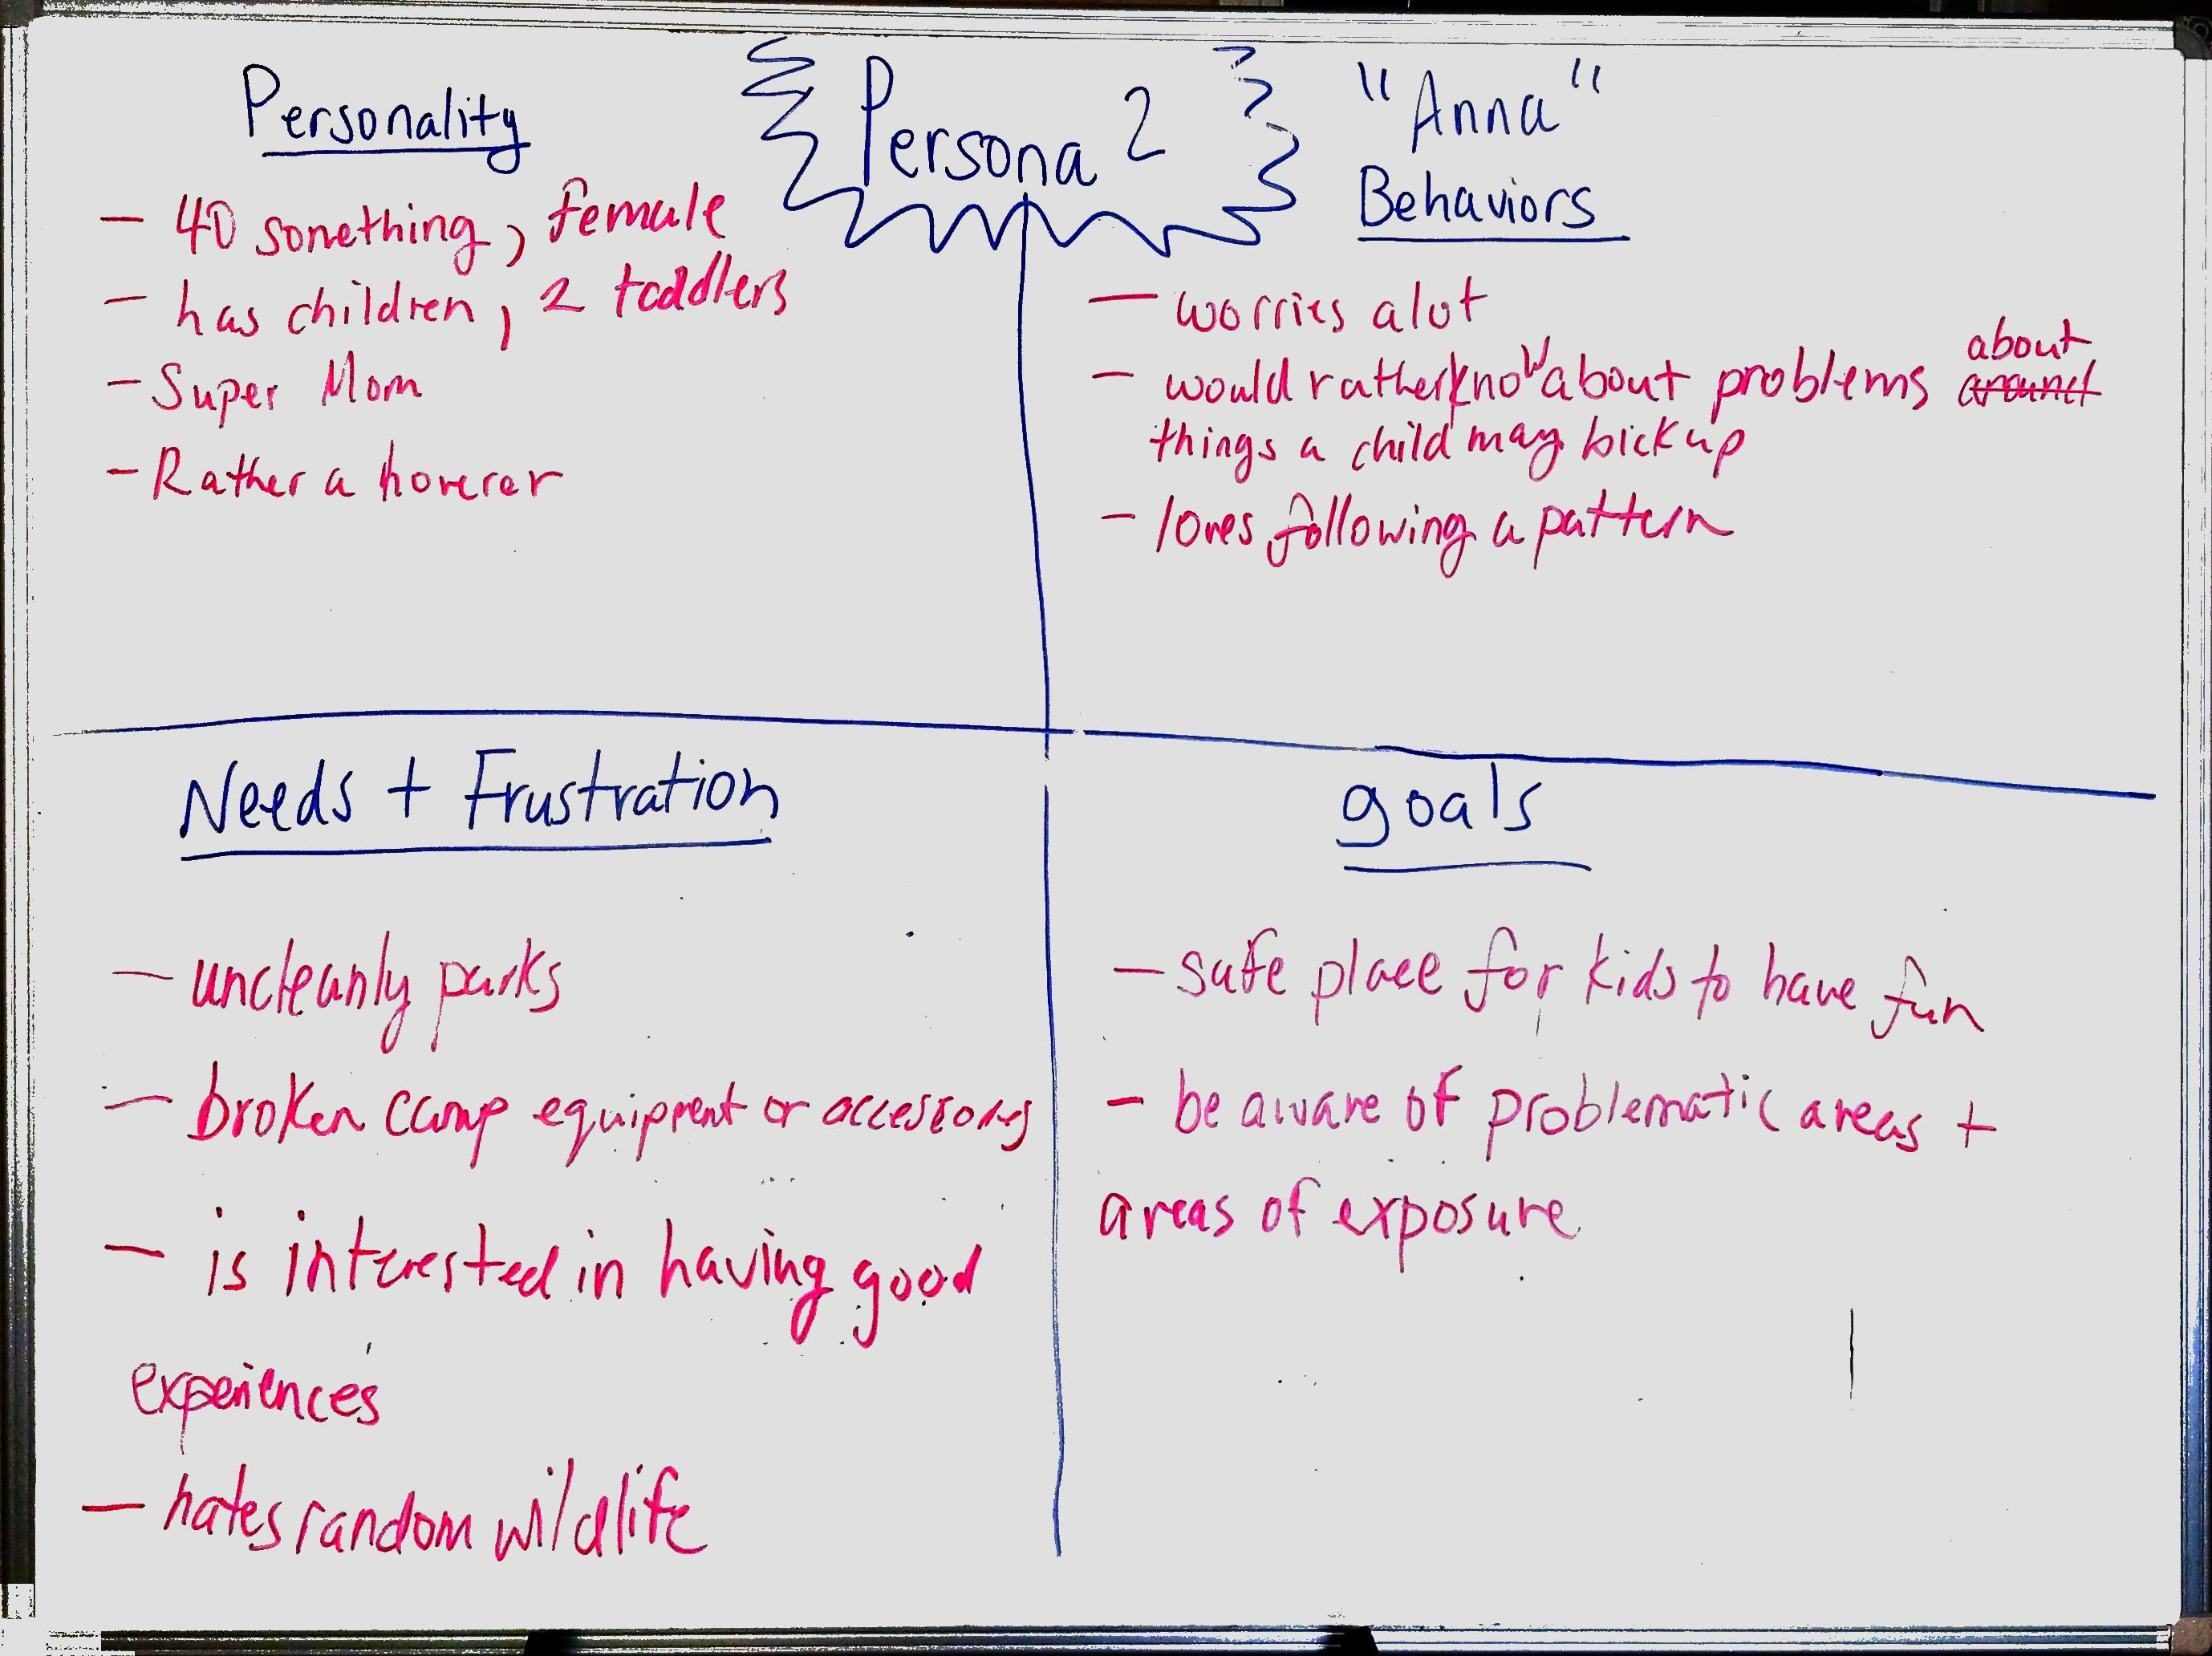 Persona 2
"Anna"
Personality
- 40 something, female
- has children, 2 toddlers
- Super Mom
- Rather a hoverer
Behaviors
- worries alot
- would rather know about problems about around
things a child may bickup
- loves following a pattern
Needs + Frustration
- uncleanly parks
- broken camp equipment or accessories
- is interested in having good
experiences
- hates random wildlife
goals
- safe place for kids to have fun
- be aware of problematic areas +
areas of exposure